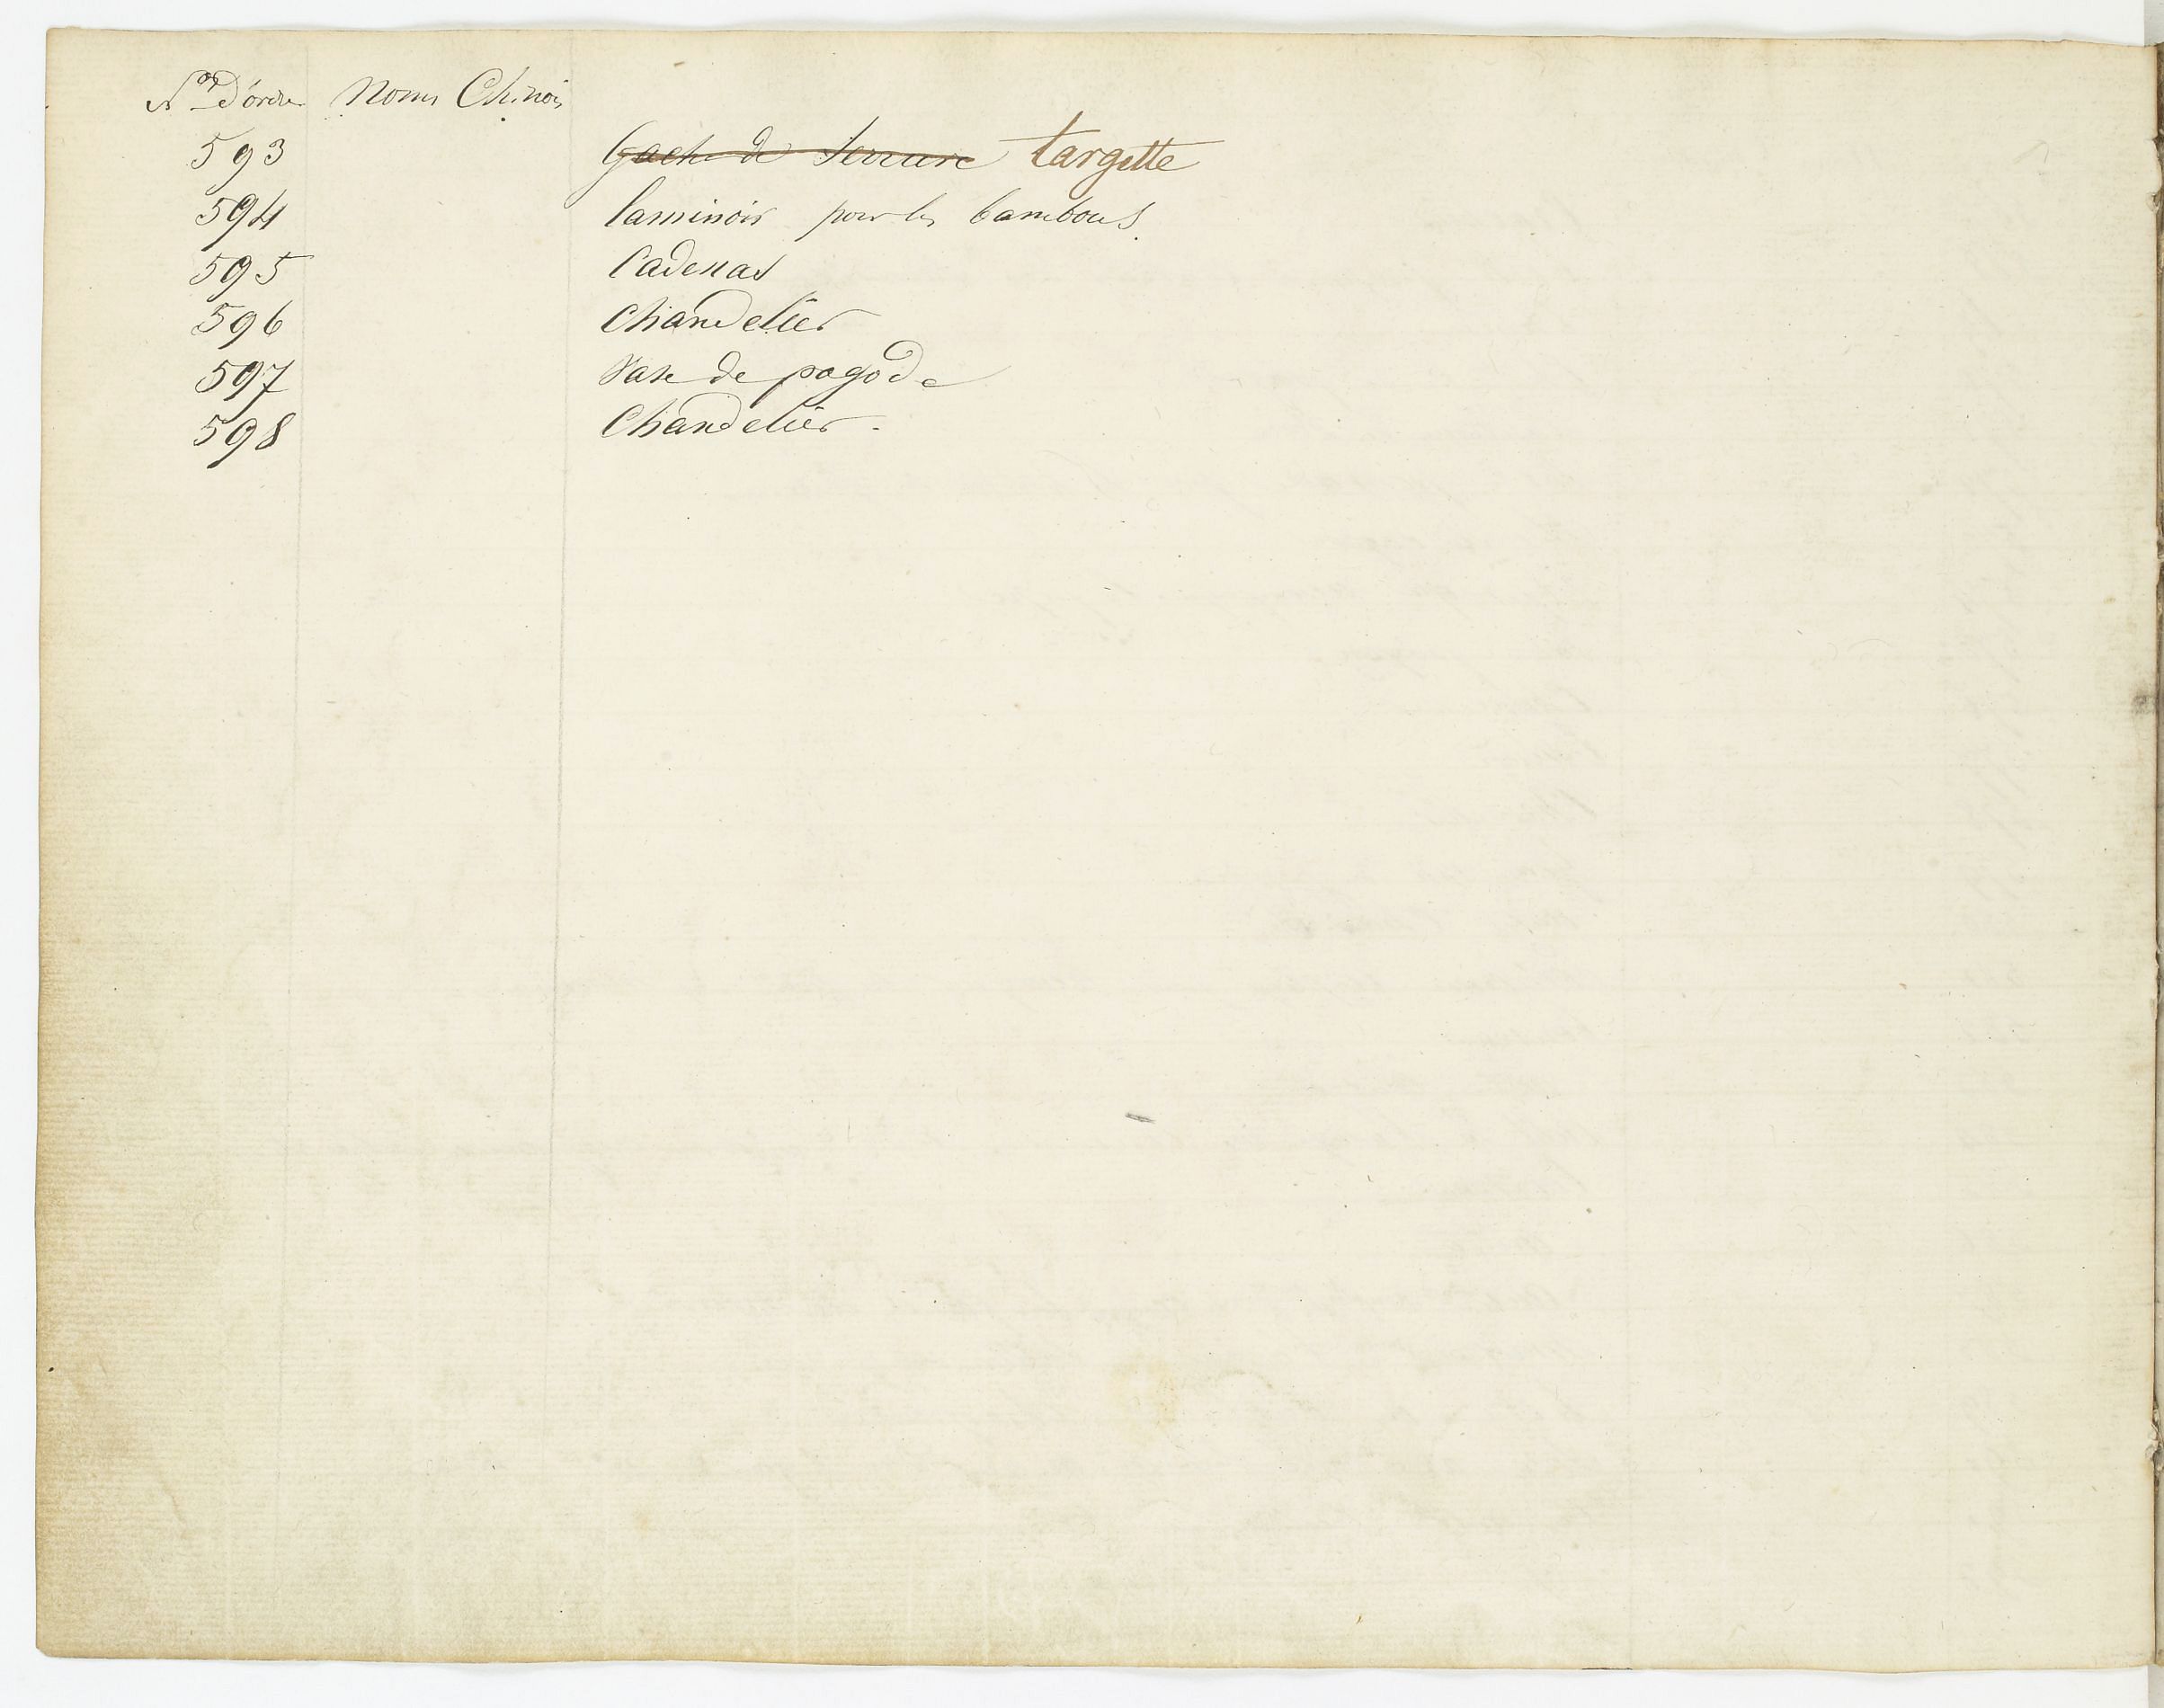 Nos D'ordre Noms Chinois
593 Gache de Serrure targette
594 laminoir pour les bambous.
595 Cadenas
596 Chandelier
597 Vase de pagode
598 Chandelier.